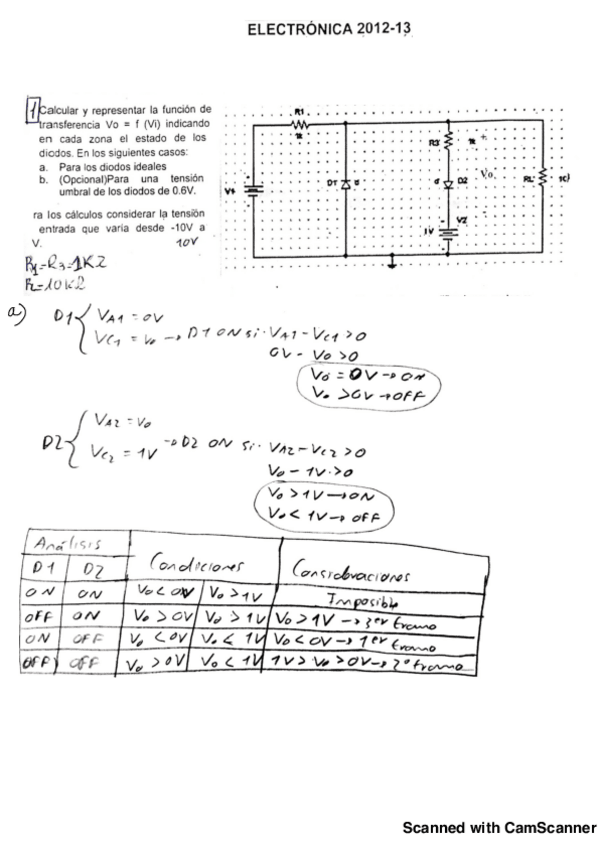 ELECTRÓNICA 2012-13
1 Calcular y representar la función de
transferencia Vo = f (Vi) indicando
en cada zona el estado de los
diodos. En los siguientes casos:
a. Para los diodos ideales
b. (Opcional)Para una tensión
umbral de los diodos de 0.6V.
ra los cálculos considerar la tensión
entrada que varia desde -10V a
V. 10V
R1=R3=1KΩ
RL=10KΩ
R1
1k
R3
1k
+
V1
D1
D2
Vo
RL
-
1V
V2
a) D1 { VA1 = 0V
VC1 = Vo → D1 ON si VA1 - VC1 > 0
0V - Vo > 0
Vo = 0V → ON
Vo > 0V → OFF
D2 { VA2 = Vo
VC2 = 1V → D2 ON si VA2 - VC2 > 0
Vo - 1V > 0
Vo > 1V → ON
Vo < 1V → OFF
Análisis
D1 D2 Condiciones Consideraciones
ON ON Vo < 0V Vo > 1V Imposible
OFF ON Vo > 0V Vo > 1V Vo > 1V → 3er tramo
ON OFF Vo < 0V Vo < 1V Vo < 0V → 1er tramo
OFF OFF Vo > 0V Vo < 1V 1V > Vo > 0V → 2º tramo
Scanned with CamScanner